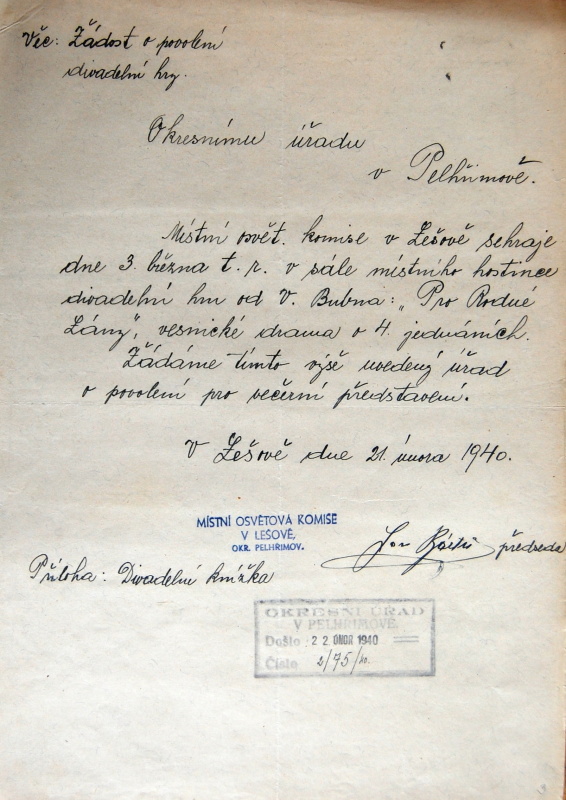 Věc: Žádost o povolení
divadelní hry.
Okresnímu úřadu
v Pelhřimově.
Místní osvět. komise v Lešově sehraje
dne 3. března t. r. v sále místního hostince
divadelní hru od V. Bubna: „Pro Rodné
Lány", vesnické drama o 4. jednáních.
Žádáme tímto výše uvedený úřad
o povolení pro večerní představení.
V Lešově dne 21. února 1940.
MÍSTNÍ OSVĚTOVÁ KOMISE
V LEŠOVĚ,
OKR. PELHŘIMOV.
předseda
Příloha: Divadelní knížka
OKRESNÍ ÚŘAD
V PELHŘIMOVĚ.
Došlo: 22. ÚNOR 1940
Číslo 2/75/40.